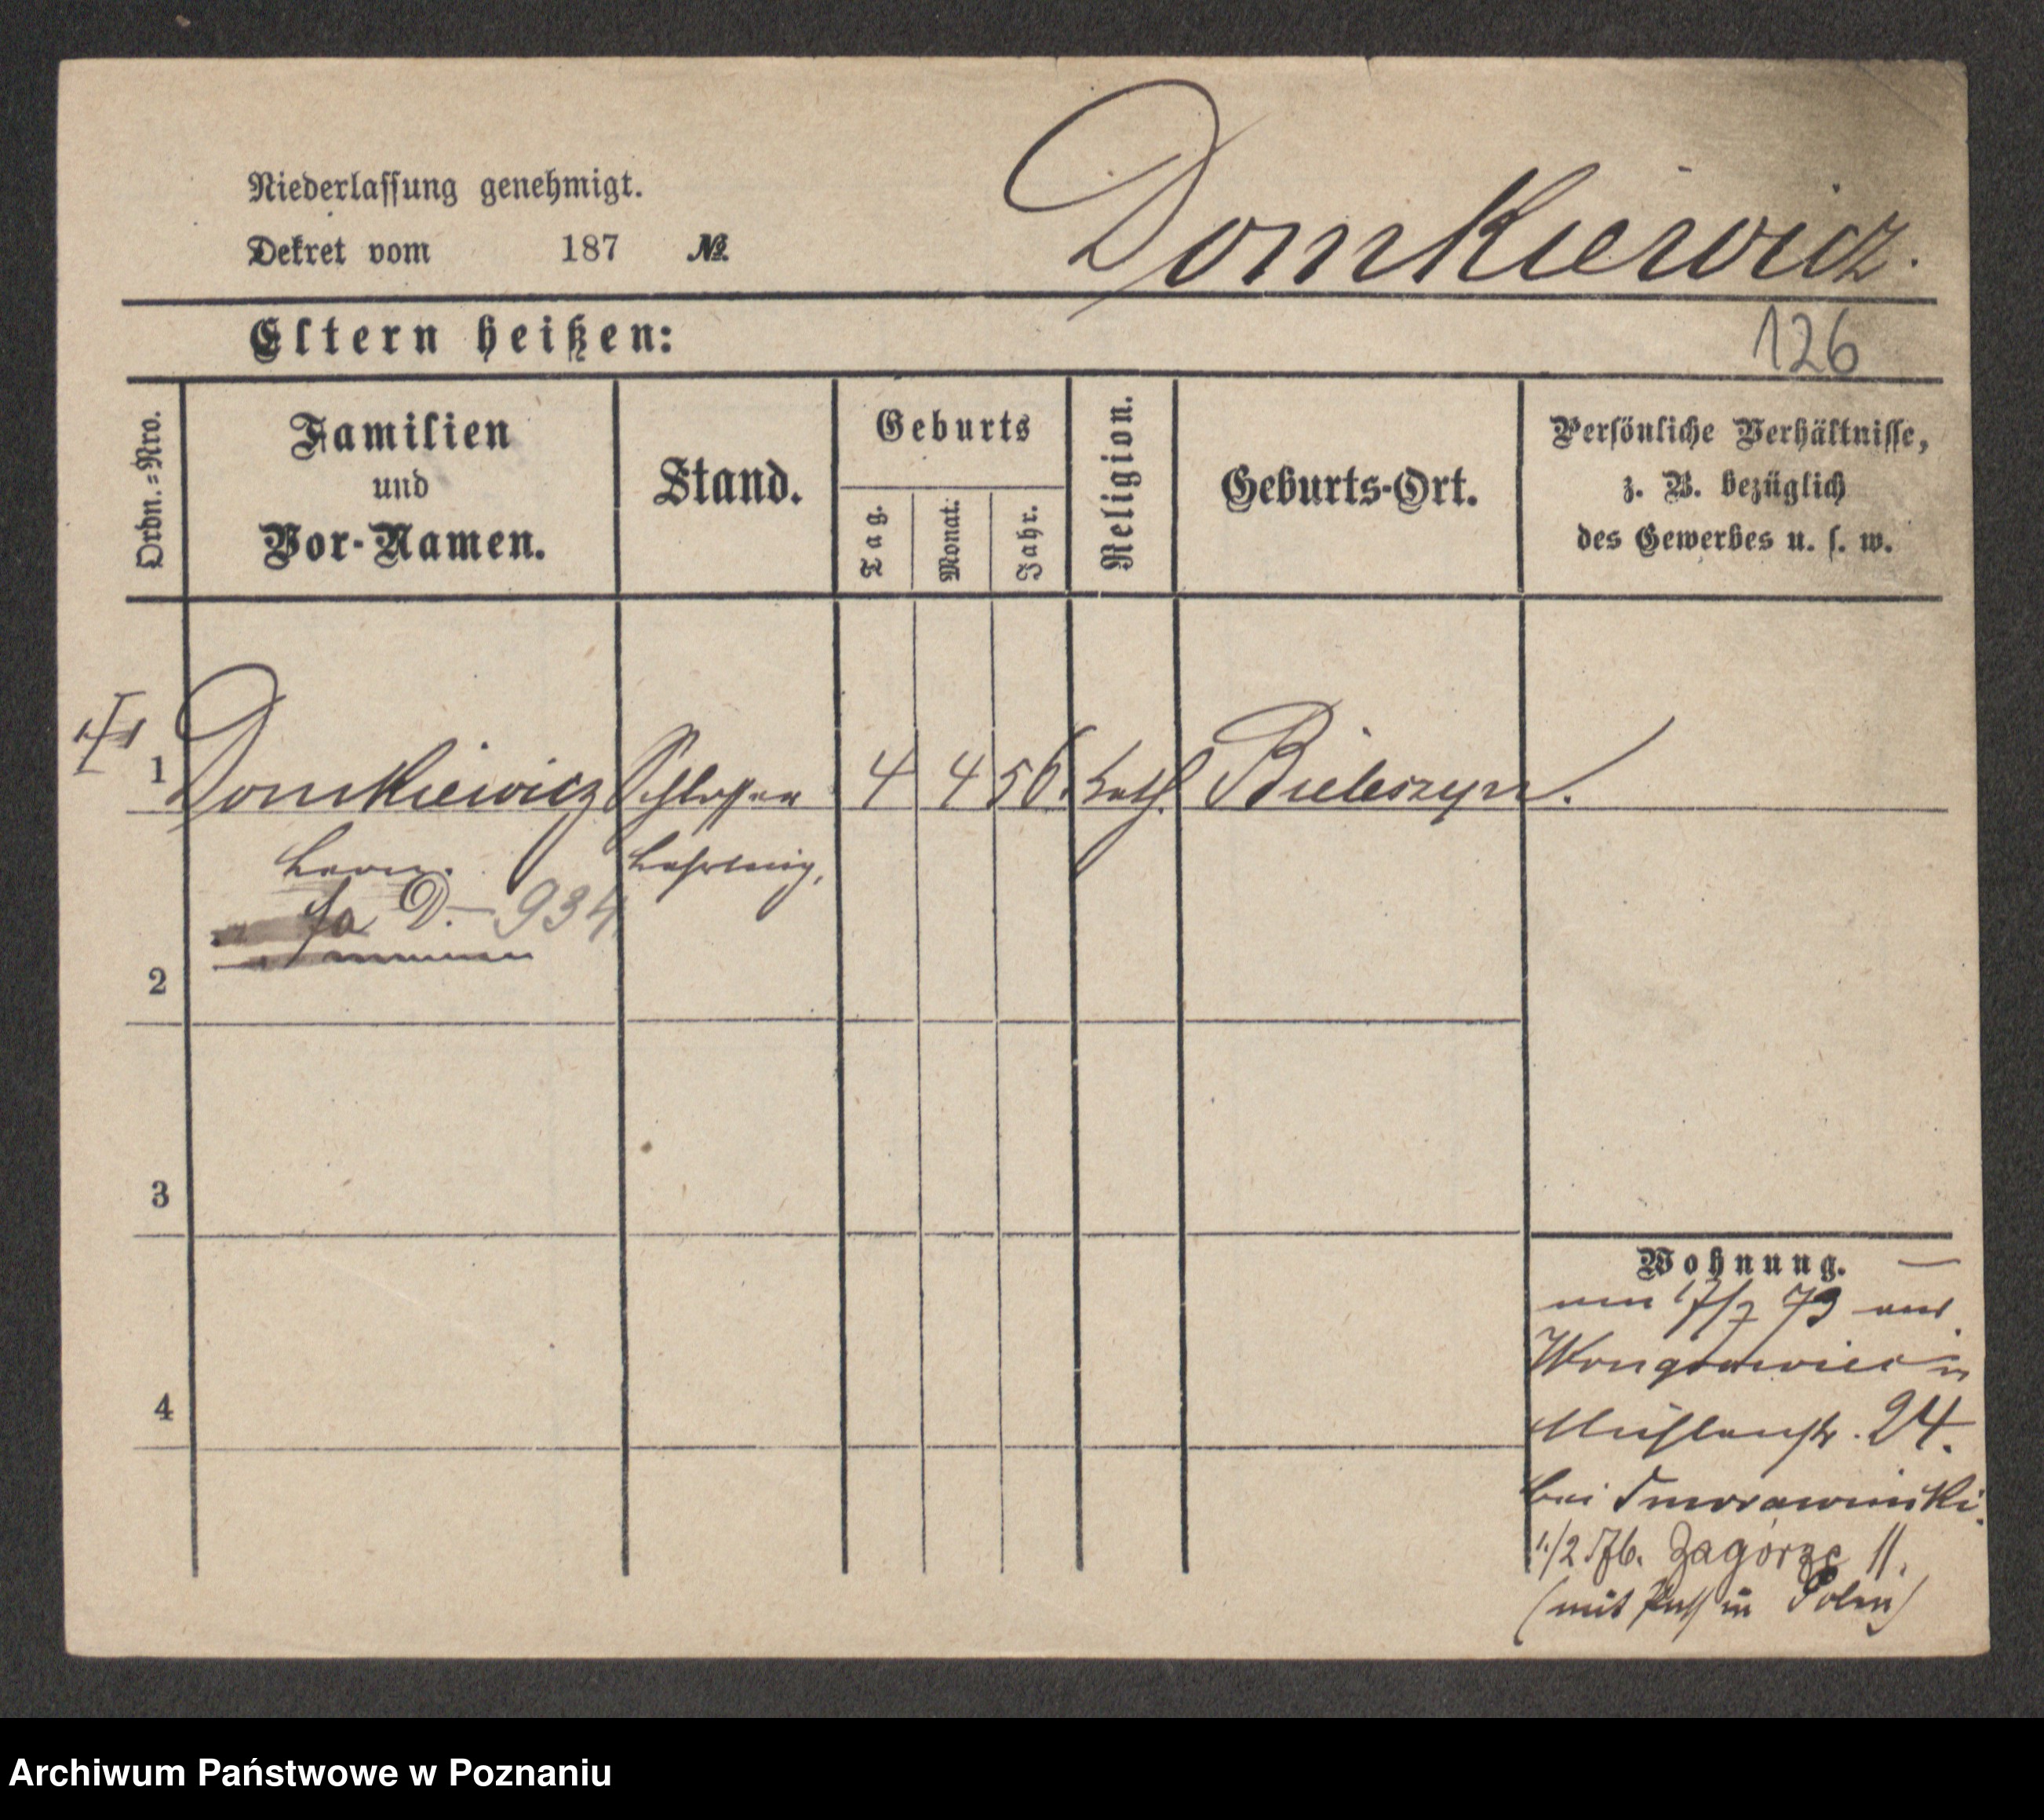 Niederlassung genehmigt.
Dekret vom 187 No.
Domkiewicz.
Eltern heißen:
126
Ordn.-Nro.
Familien
und
Vor-Namen.
Stand.
Geburts
Tag.
Monat.
Jahr.
Religion.
Geburts-Ort.
Persönliche Verhältnisse,
z. B. bezüglich
des Gewerbes u. s. w.
1 Domkiewicz Schlosser 4 4 56. kath. Bieleszyn.
Leon. Lehrling,
D. - 934
2
3
4
Wohnung. —
17/7 73 aus
Wongrowiec in
Mühlenstr. 24.
bei Smorawinski.
1/2 76. Zagórze 11.
(mit Paß in Polen)
Archiwum Państwowe w Poznaniu